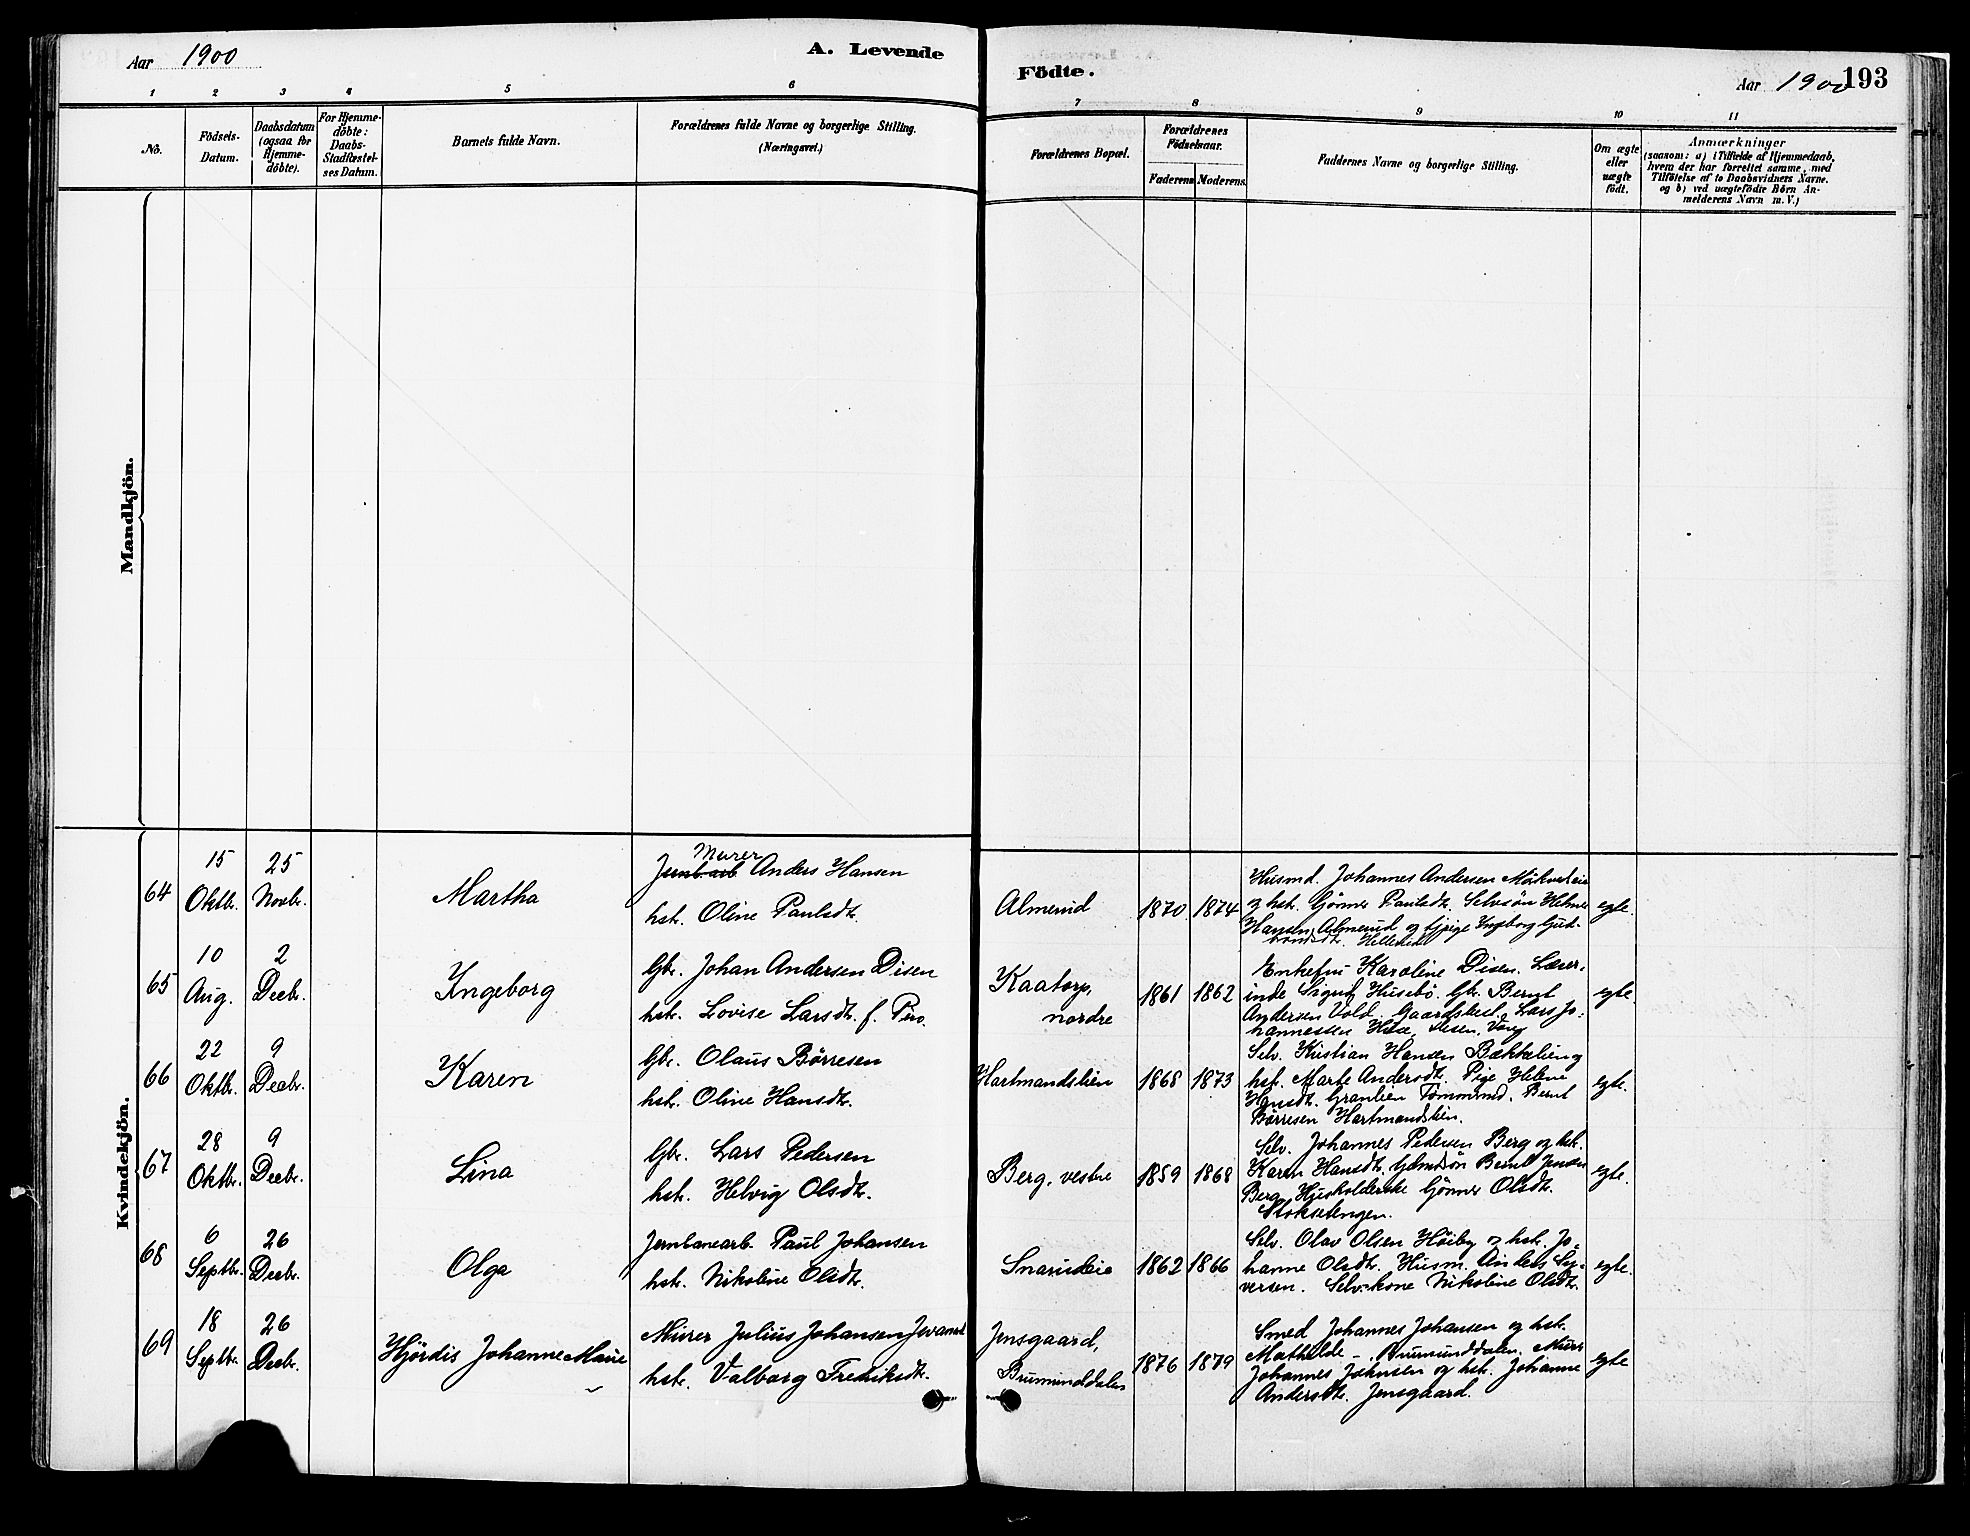 Aar 1900
A. Levende
Födte.
Aar 1900
193
1 2 3 4 5 6 7 8 9 10 11
No.
Födsels-
Datum.
Daabsdatum
(ogsaa for
Hjemme-
döbte).
For Hjemme-
döbte:
Daabs-
Stadfæstel-
ses Datum.
Barnets fulde Navn.
Forældrenes fulde Navne og borgerlige Stilling.
(Næringsvei.)
Forældrenes Bopæl.
Forældrenes
Födselsaar.
Faderens Moderens.
Faddernes Navne og borgerlige Stilling.
Om ægte
eller
uægte
födt.
Anmærkninger
(saasom: a) i Tilfælde af Hjemmedaab,
hvem der har forrettet samme, med
Tilföielse af to Daabsvidners Navne.
og b) ved uægtefödte Börn An-
melderens Navn m. V.)
Mandkjön.
Kvindekjön.
64
15
Oktbr.
25
Novbr.
Martha
Murer
Jernb.arb Anders Hansen
hst. Oline Paulsdtr.
Almerud
1870 1874
Husmd. Johannes Andersen
og hst. Gönner Paulsdtr. Selvsön Helmer
Hansen Almerud og tjpige Ingeborg Gud-
brandsdtr.
egte.
65
10
Aug.
2
Decbr.
Ingeborg
Gbr. Johan Andersen Disen
hst. Lovise Larsdtr. f.
Kaatorp,
nordre
1861 1862
Enkefru Karoline Disen. Lærer-
inde Sigrid Husebö. Gbr. Bernt
Andersen Vold. Lars Jo-
hannessen Vang
egte
66
22
Oktbr.
9
Decbr.
Karen
Gbr. Olaus Börresen
hst. Oline Hansdtr.
Hartmandslien
1868 1873
Selv. Kristian Hansen Bækkelien og
hst. Marte Andersdtr. Pige Helene
Hansdtr. Granlien Bernt
Börresen Hartmandslien.
egte.
67
28
Oktbr.
9
Decbr.
Lina
Gbr. Lars Pedersen
hst. Helvig Olsdtr.
Berg, vestre
1859 1868
Selv. Johannes Pedersen Berg og hst.
Karen Hansdtr. Gbmdsön Bernt Jensen
Berg. Husholderske Gönner Olsdtr.
Stoksetengen.
egte.
68
6
Septbr.
26
Decbr.
Olga
Jernbanearb. Paul Johansen
hst. Nikoline Olsdtr.
Snarudeie
1862 1866
Selv. Olav Olsen Höiby og hst. Jo-
hanne Olsdtr. Husm. Anders Sy-
versen. Selv.kone Nikoline Olsdtr.
egte.
69
18
Septbr.
26
Decbr.
Hjördis Johanne Marie
Murer Julius Johansen
hst. Valborg Frediksdtr.
Jensgaard,
Brumunddalen
1876 1879
Smed Johannes Johansen og hst.
Mathilde – Brumunddalen. Murer
Johannes Johnsen og hst. Johanne
Andersdtr. Jensgaard.
egte